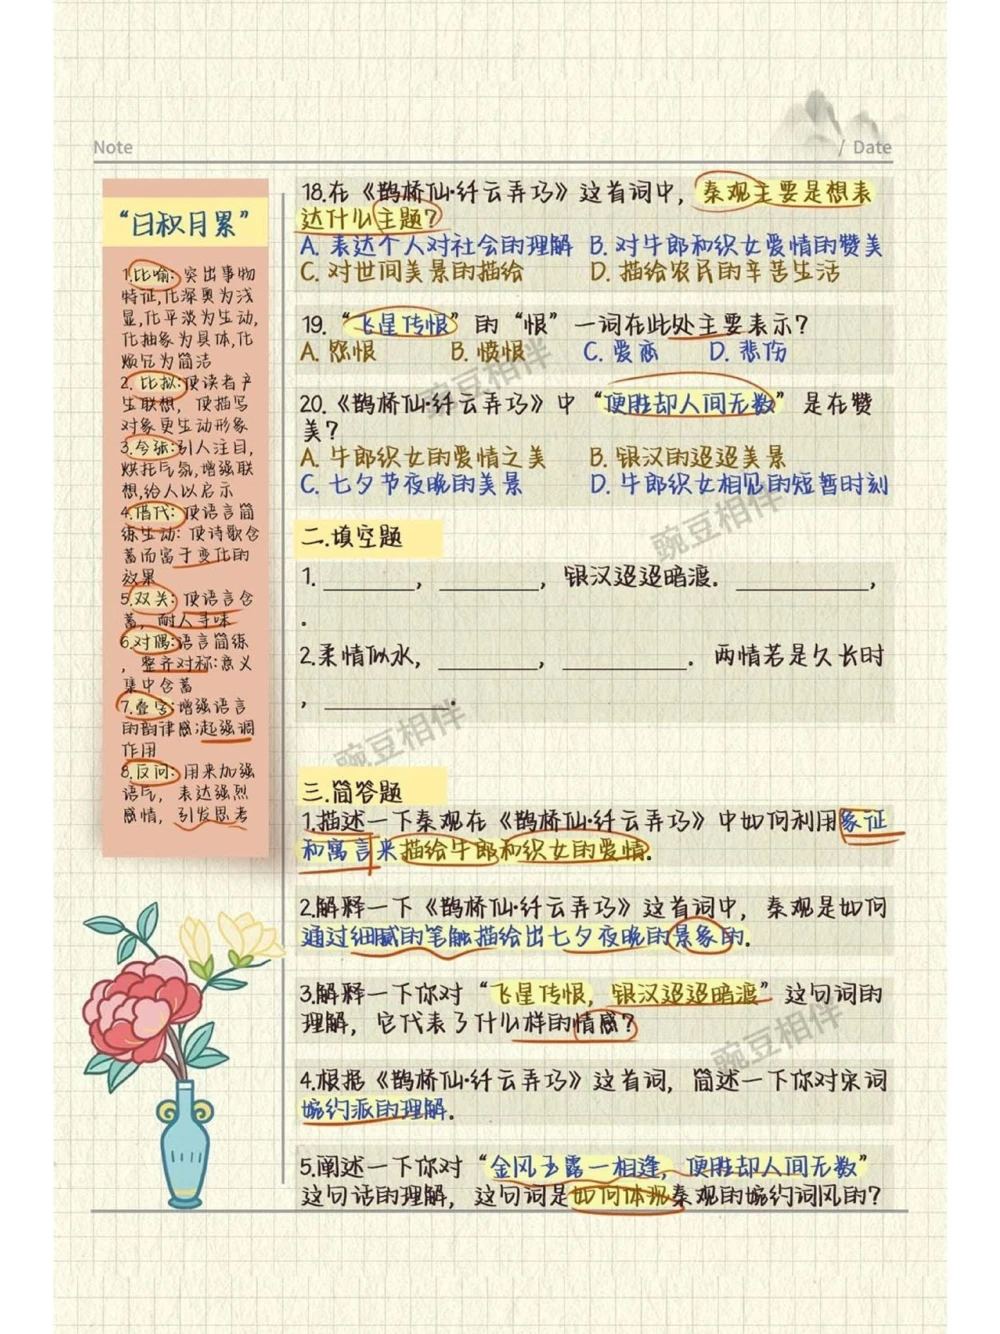 Note
/ Date
“日积月累”
1.比喻:突出事物
特征,化深奥为浅
显,化平淡为生动,
化抽象为具体,化
烦冗为简洁
2.比拟:使读者产
生联想,使描写
对象更生动形象
3.夸张:引人注目,
烘托气氛,增强联
想,给人以启示
4.借代:使语言简
练生动:使诗歌含
蓄而富于变化的
效果
5.双关:使语言含
蓄,耐人寻味
6.对偶:语言简练
,整齐对称:意义
集中含蓄
7.叠字:增强语言
的韵律感;起强调
作用
8.反问:用来加强
语气,表达强烈
感情,引发思考
18.在《鹊桥仙·纤云弄巧》这首词中,秦观主要是想表
达什么主题?
A. 表达个人对社会的理解 B. 对牛郎和织女爱情的赞美
C. 对世间美景的描绘 D. 描绘农民的辛苦生活
19.“飞星传恨”的“恨”一词在此处主要表示?
A. 怨恨 B. 愤恨 C. 爱恋 D. 悲伤
20.《鹊桥仙·纤云弄巧》中“便胜却人间无数”是在赞
美?
A. 牛郎织女的爱情之美 B. 银汉的迢迢美景
C. 七夕节夜晚的美景 D. 牛郎织女相见的短暂时刻
二.填空题
1. ________, ________, 银汉迢迢暗渡. ___________,
.
2.柔情似水, ________, __________. 两情若是久长时
, __________.
三.简答题
1.描述一下秦观在《鹊桥仙·纤云弄巧》中如何利用象征
和寓言来描绘牛郎和织女的爱情.
2.解释一下《鹊桥仙·纤云弄巧》这首词中,秦观是如何
通过细腻的笔触描绘出七夕夜晚的景象的.
3.解释一下你对“飞星传恨,银汉迢迢暗渡”这句词的
理解,它代表了什么样的情感?
4.根据《鹊桥仙·纤云弄巧》这首词,简述一下你对宋词
婉约派的理解.
5.阐述一下你对“金风玉露一相逢,便胜却人间无数”
这句话的理解,这句词是如何体现秦观的婉约词风的?
豌豆相伴
豌豆相伴
豌豆相伴
豌豆相伴